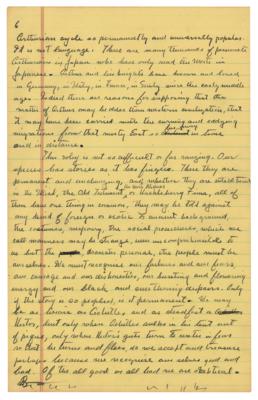 6
Arthurian cycle so permanently and universally popular.
It is not language. There are many thousands of passionate
Arthurians in Japan who have only read the stories in
Japanese. Arthur and his knights have been known and loved
in Germany, in Italy, in France, in Sicily since the early middle
ages. Indeed there are reasons for supposing that the
matter of Arthur may be older than western civilization, that
it may have been carried with the curving and eddying
migrations from that misty East so far in time
and in distance.
This why is not so difficult or far ranging. Our
species has stories as it has fingers. These they are
permanent and unchanging, and whether they are
in the Iliad, the Old Testament, or Huckleberry Finn, all of
them have one thing in common, they may be told against
any kind of foreign or exotic to current background,
the costumes, weapons, the social procedures, which we
call manners may be strange, even incomprehensible to
us but the persons, the people must be
ourselves. We must recognize our failures and our fears,
our courage and our dishonesties, our bursting and flowering
energy and our black and withering despairs. Only
if the story is so peopled, is it permanent. We may
be as brave as Achilles, and as steadfast as
Hector, but only when Achilles sulks in his tent out
of pique, only when Hector's guts turn to water in fear
so that he turns and flees, do we accept and treasure
perhaps because we recognize our selves good and
bad. If the all good or all bad we are skeptical.